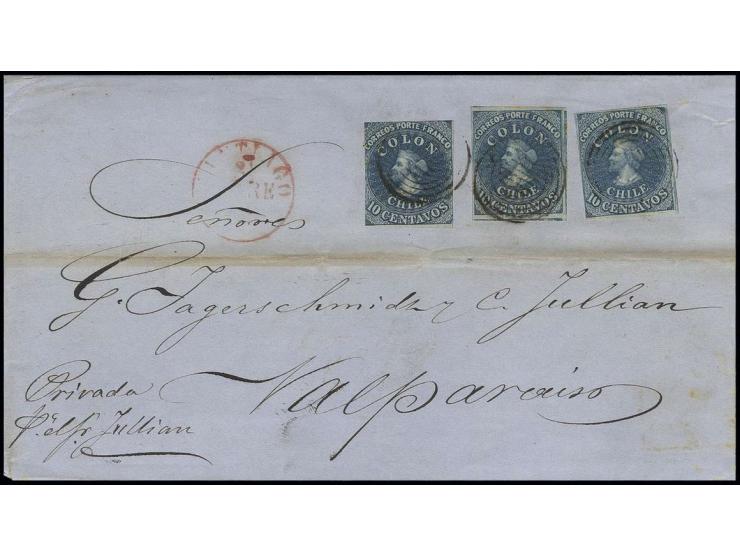 CORREOS PORTE FRANCO
COLON
CHILE
10 CENTAVOS
CORREOS PORTE FRANCO
COLON
CHILE
10 CENTAVOS
CORREOS PORTE FRANCO
COLON
CHILE
10 CENTAVOS
Señores
G. Jagerschmidt y C. Jullian
Valparaiso
Privada
Jullian